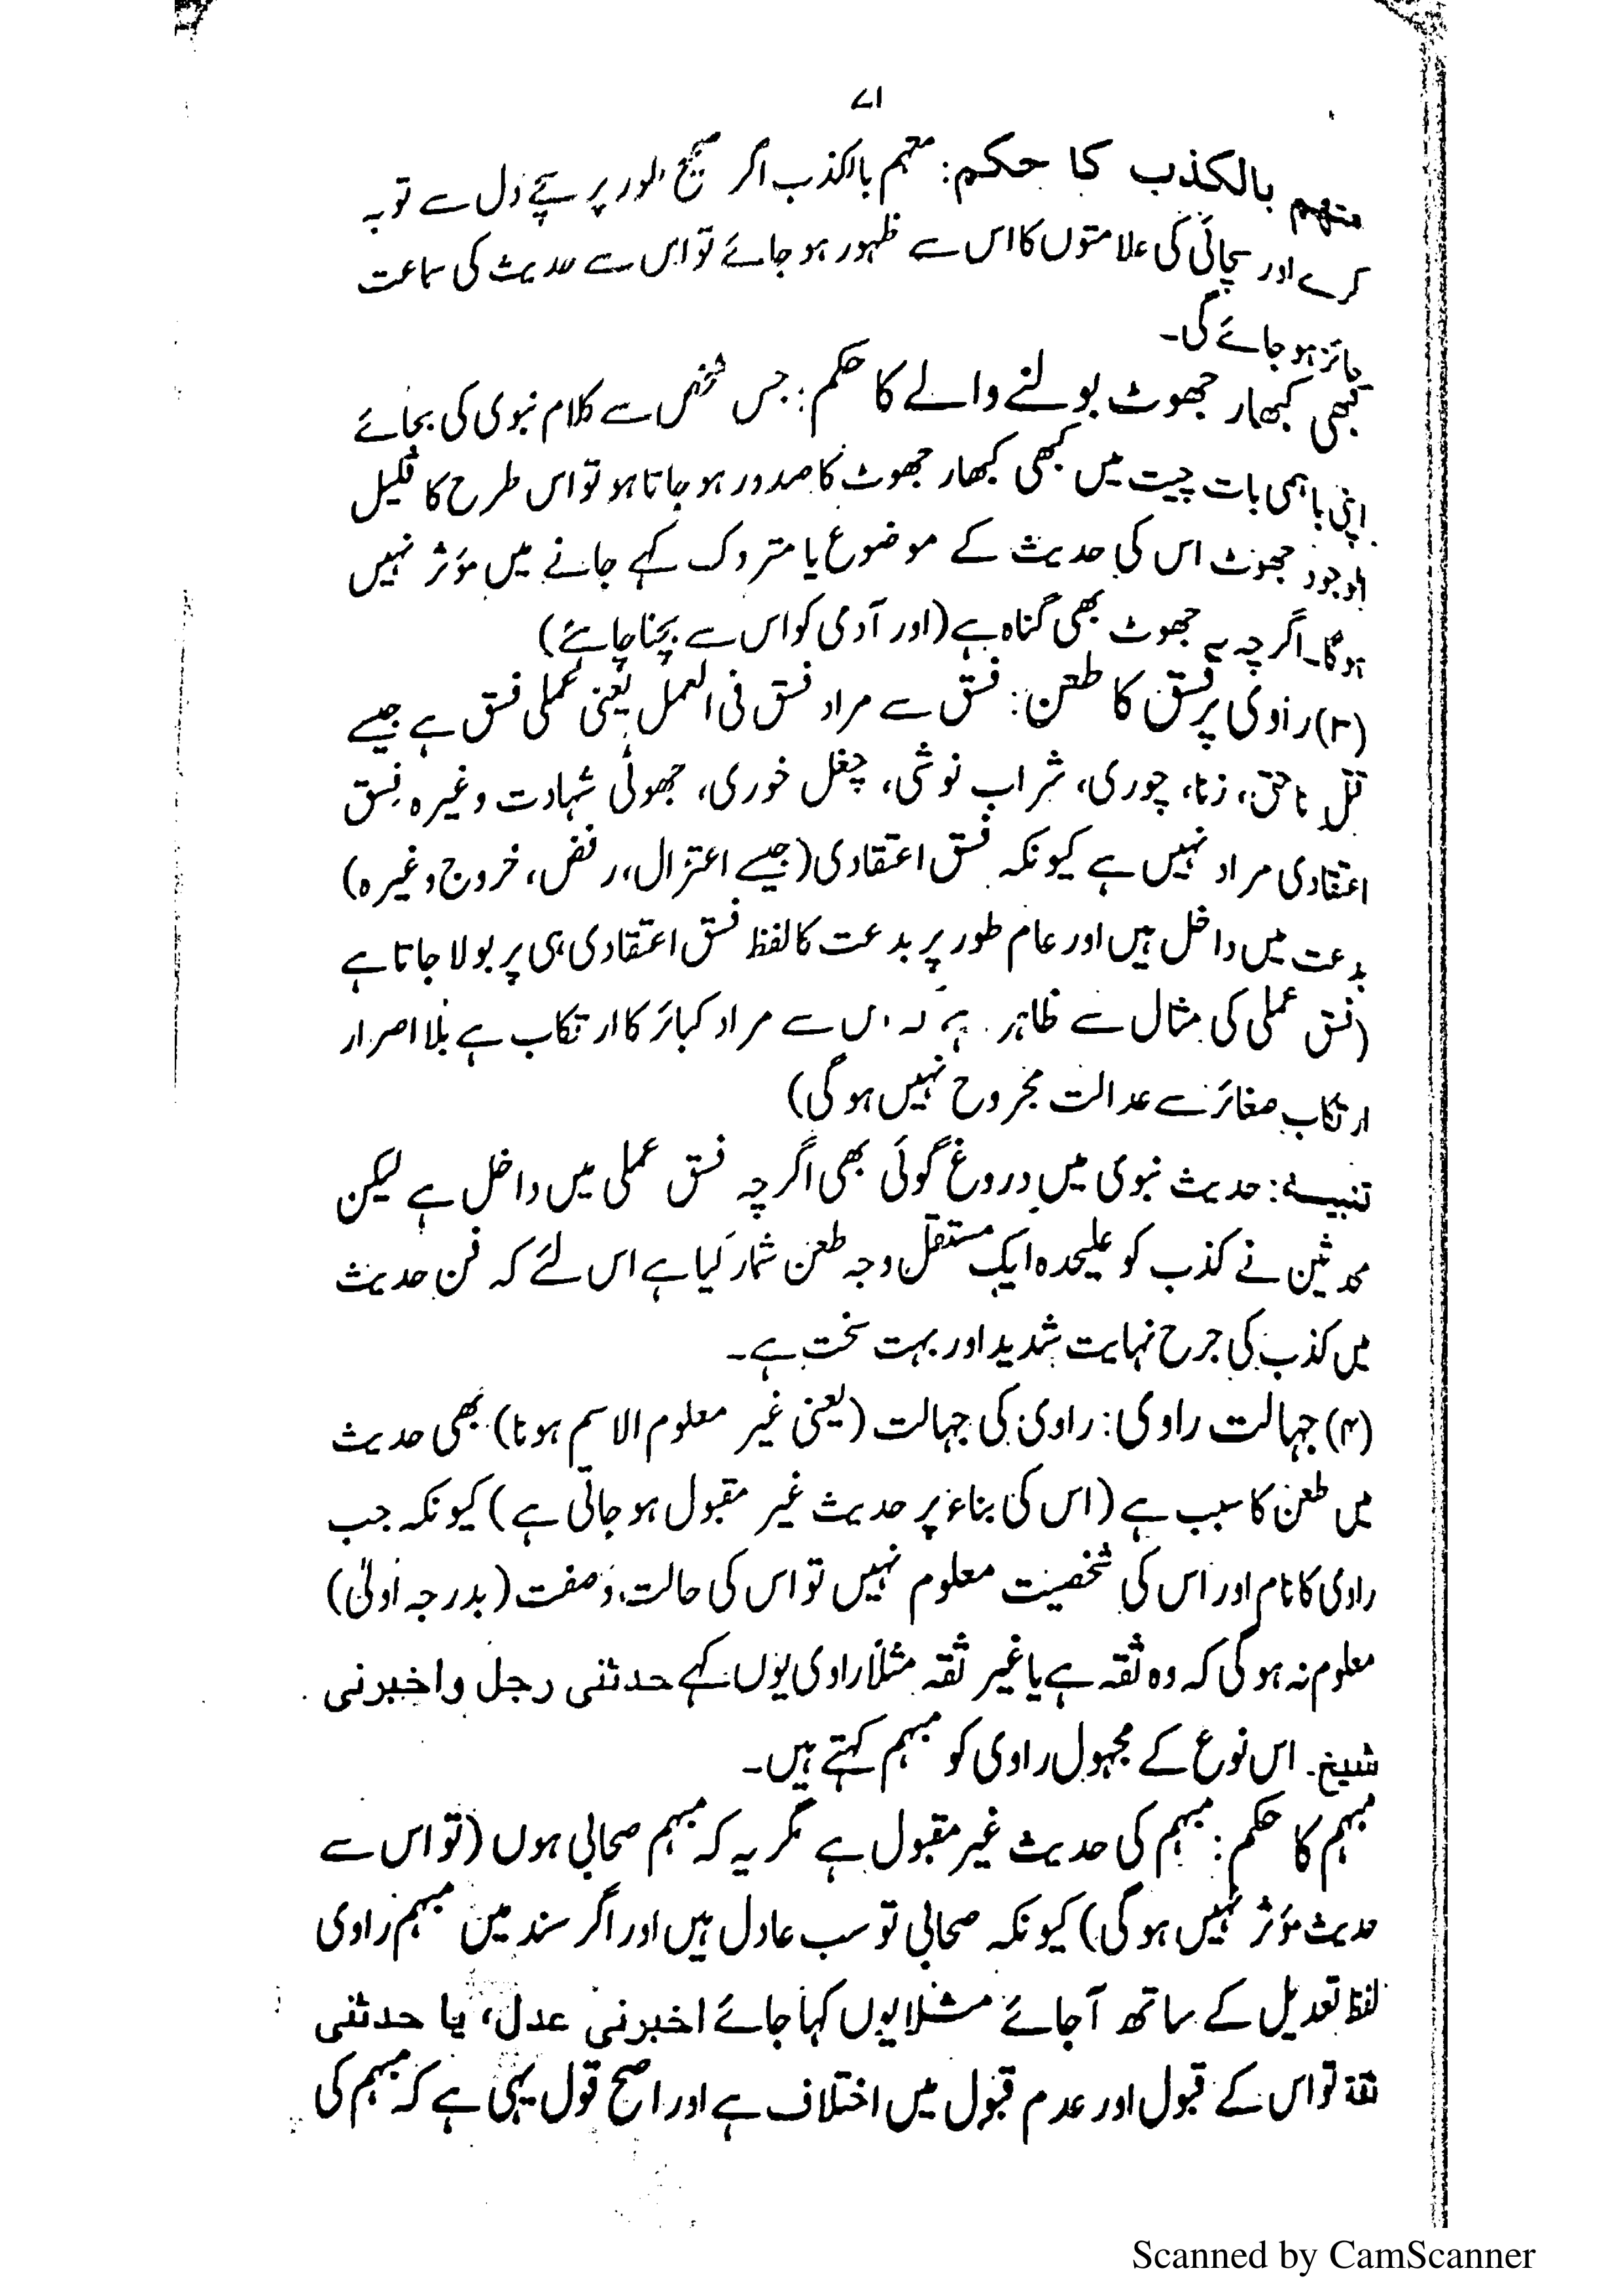 ۷۱
متہم بالکذب کا حکم: متہم بالکذب اگر صحیح طور پر سچے دل سے توبہ
کرے اور سچائی کی علامتوں کا اس سے ظہور ہو جائے تو اس سے حدیث کی سماعت
جائز ہو جائے گی۔
کبھی کبھار جھوٹ بولنے والے کا حکم: جس شخص سے کلام نبوی کی بجائے
اپنی باہمی بات چیت میں کبھی کبھار جھوٹ کا صدور ہو جاتا ہو تو اس طرح کا قلیل
الوجود جھوٹ اس کی حدیث کے موضوع یا متروک کہے جانے میں مؤثر نہیں
ہوگا۔ اگرچہ یہ جھوٹ بھی گناہ ہے (اور آدمی کو اس سے بچنا چاہئے)
(۳) راوی پر فسق کا طعن: فسق سے مراد فسق فی العمل یعنی عملی فسق ہے جیسے
قتل ناحق، زنا، چوری، شراب نوشی، چغل خوری، جھوٹی شہادت وغیرہ فسق
اعتقادی مراد نہیں ہے کیونکہ فسق اعتقادی (جیسے اعتزال، رفض، خروج وغیرہ)
بدعت میں داخل ہیں اور عام طور پر بدعت کا لفظ فسق اعتقادی ہی پر بولا جاتا ہے
(فسق عملی کی مثال سے ظاہر ہے کہ اس سے مراد کبائر کا ارتکاب ہے بلا اصرار
ارتکاب صغائر سے عدالت مجروح نہیں ہوگی)
تنبیہ: حدیث نبوی میں دروغ گوئی بھی اگرچہ فسق عملی میں داخل ہے لیکن
محدثین نے کذب کو علیحدہ ایک مستقل وجہ طعن شمار کیا ہے اس لئے کہ فن حدیث
میں کذب کی جرح نہایت شدید اور بہت سخت ہے۔
(۴) جہالت راوی: راوی کی جہالت (یعنی غیر معلوم الاسم ہونا) بھی حدیث
میں طعن کا سبب ہے (اس کی بناء پر حدیث غیر مقبول ہو جاتی ہے) کیونکہ جب
راوی کا نام اور اس کی شخصیت معلوم نہیں تو اس کی حالت و صفت (بدرجہ اولیٰ)
معلوم نہ ہوگی کہ وہ ثقہ ہے یا غیر ثقہ مثلاً راوی یوں کہے حدثنی رجل واخبرنی
شیخ۔ اس نوع کے مجہول راوی کو مبہم کہتے ہیں۔
مبہم کا حکم: مبہم کی حدیث غیر مقبول ہے مگر یہ کہ مبہم صحابی ہوں (تو اس سے
حدیث مؤثر نہیں ہوگی) کیونکہ صحابی تو سب عادل ہیں اور اگر سند میں مبہم راوی
لفظ تعدیل کے ساتھ آجائے مثلا یوں کہا جائے اخبرنی عدل، یا حدثنی
ثقة تو اس کے قبول اور عدم قبول میں اختلاف ہے اور اصح قول یہی ہے کہ مبہم کی
Scanned by CamScanner